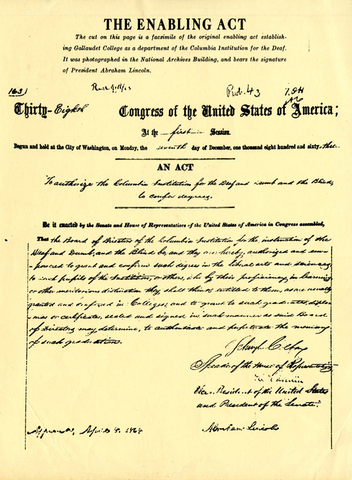 THE ENABLING ACT
The cut on this page is a facsimile of the original enabling act establish-
ing Gallaudet College as a department of the Columbia Institution for the Deaf.
It was photographed in the National Archives Building, and bears the signature
of President Abraham Lincoln.
Thirty-Eighth Congress of the United States of America;
At the first Session,
Begun and held at the City of Washington, on Monday, the seventh day of December, one thousand eight hundred and sixty-three
AN ACT
To authorize the Columbia Institution for the Deaf and Dumb and the Blind
to confer degrees.
Be it enacted by the Senate and House of Representatives of the United States of America in Congress assembled,
That the Board of Directors of the Columbia Institution for the instruction of the
Deaf and Dumb, and the Blind be, and they are hereby, authorized and em-
powered to grant and confirm such degrees in the liberal arts and sciences
to such pupils of the Institution, or others, who by their proficiency in learning
or other meritorious distinction they shall think entitled to them, as are usually
granted and conferred in Colleges; and to grant to such graduates diplo-
mas or certificates, sealed and signed in such manner as said Board
of Directors may determine, to authenticate and perpetuate the memory
of such graduations.
Schuyler Colfax
Speaker of the House of Representatives
H. Hamlin
Vice-President of the United States
and President of the Senate.
Approved, April 8, 1864
Abraham Lincoln